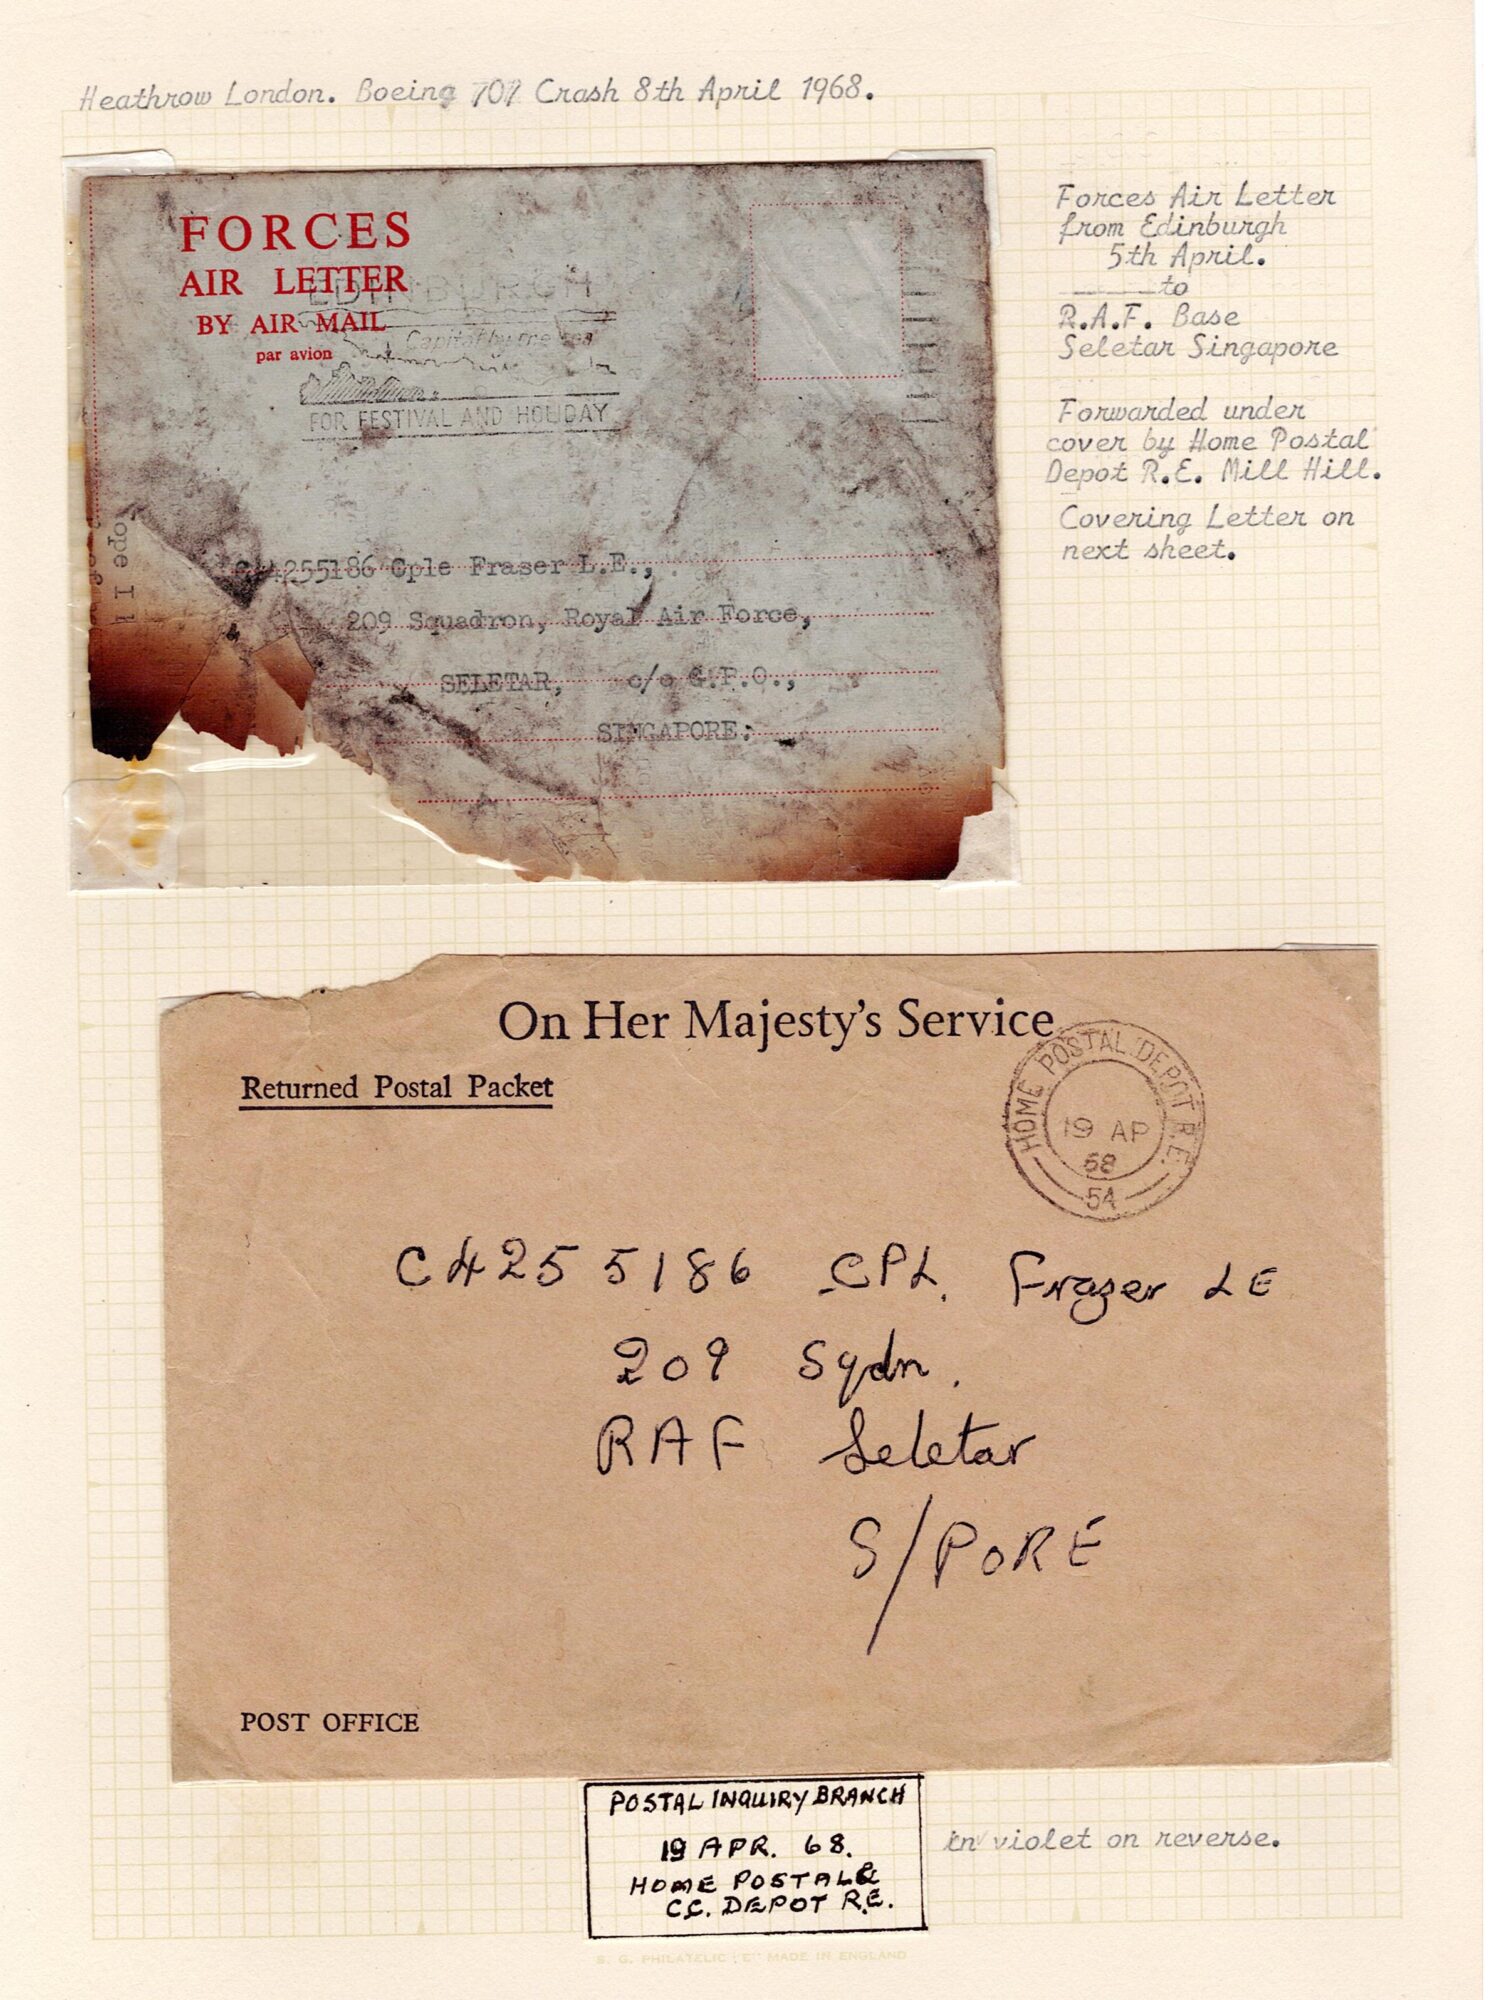 Heathrow London. Boeing 707 Crash 8th April 1968.
FORCES
AIR LETTER
BY AIR MAIL
par avion
EDINBURGH
Capital by the sea
FOR FESTIVAL AND HOLIDAY
4255186 Cple Fraser L.E.,
209 Squadron, Royal Air Force,
SELETAR, c/o G.P.O.,
SINGAPORE.
Forces Air Letter
from Edinburgh
5th April.
to
R.A.F. Base
Seletar Singapore
Forwarded under
cover by Home Postal
Depot R.E. Mill Hill.
Covering Letter on
next sheet.
On Her Majesty's Service
Returned Postal Packet
HOME POSTAL DEPOT R.E.
19 AP
68
54
C4255186 CPL. Frazer LE
209 Sqdn.
RAF Seletar
S/PORE
POST OFFICE
POSTAL INQUIRY BRANCH
19 APR. 68.
HOME POSTAL &
CC. DEPOT R.E.
in violet on reverse.
S. G. PHILATELIC MADE IN ENGLAND